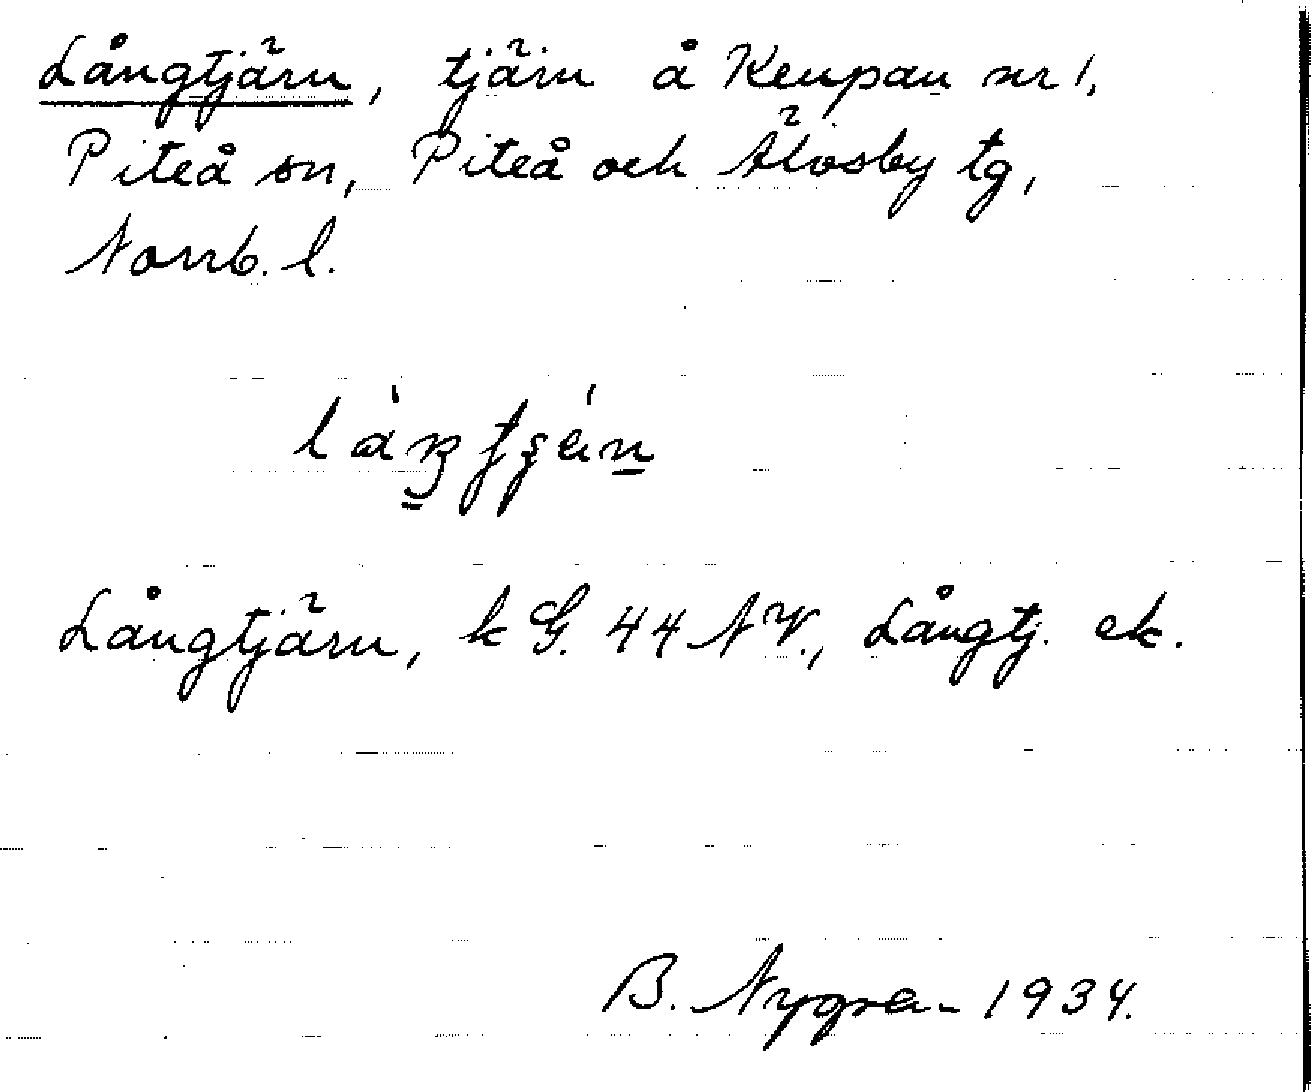 Långtjärn, tjärn å Keupan nr 1,
Piteå sn, Piteå och Älvsby tg,
Norrb. l.
Långtjärn, k G. 44 NV., Långtj. ek.
B. Nygren 1934.